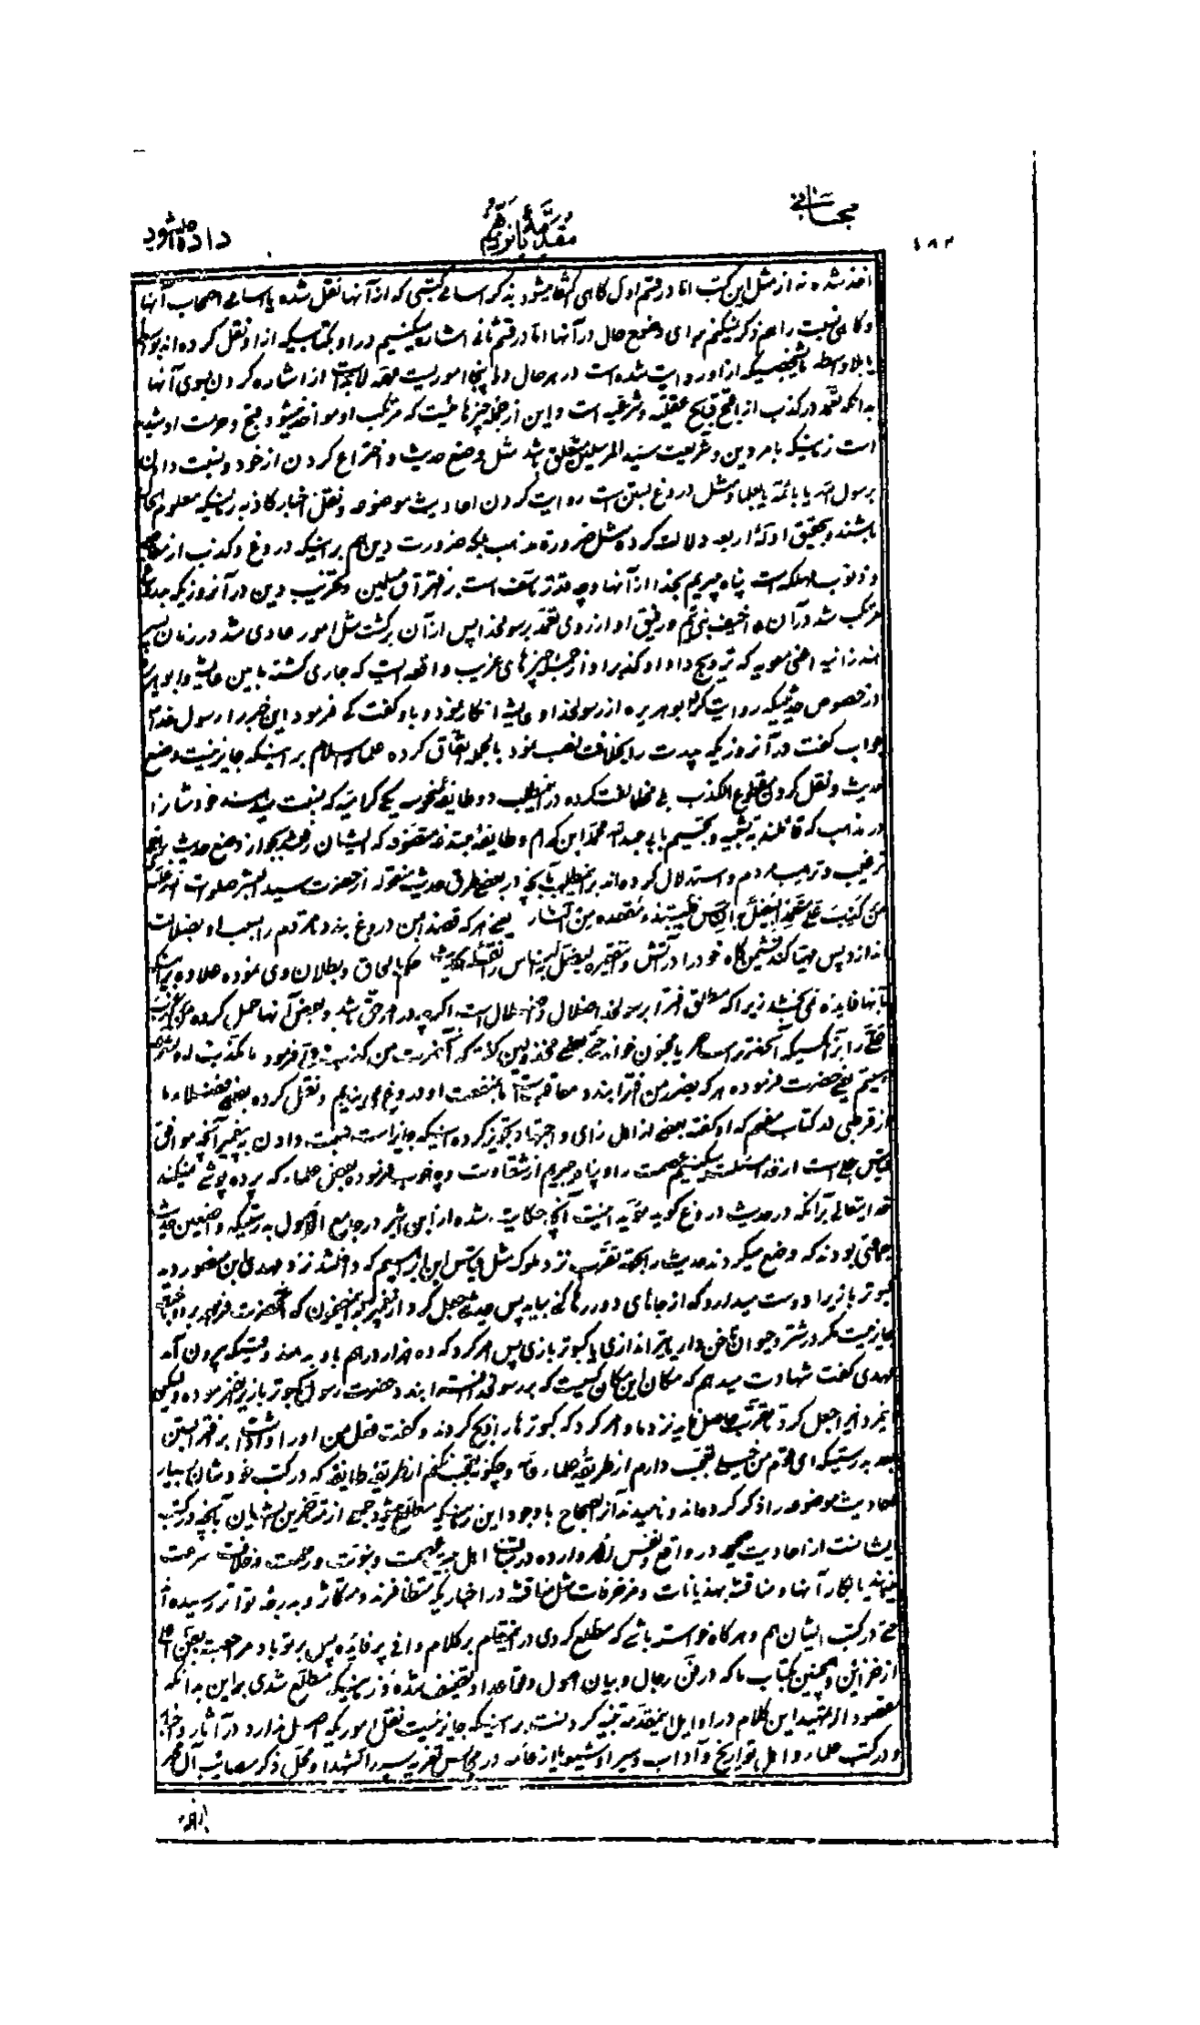 ١٨٢
داده میشود
اخذ شده نه از مثل این کتب اما در قسم اول کاهی اکتفا میشود بذکر اسامی کتبی که از آنها نقل شده یا اسامی اصحاب آنها
و کاهی نسبت را هم ذکر نمیکنم برای وضوح حال در آنها اما در قسم ثانی اشاره میکنیم در او بکتابیکه از او نقل کرده اند
یا بلا واسطه یا شخصیکه از او روایت شده است در هر حال و در اینجا امور است از اشاره کردن بسوی آنها
بدانکه تعمد در کذب از اقبح قبایح عقلیه و شرعیه است و این از جمله چیزهائیست که مرتکب او مواخذ میشود و قبح و حرمت او شدید
است زمانیکه بامر دین و شریعت سید المرسلین متعلق باشد مثل وضع حدیث و اختراع کردن از خود و نسبت دادن
برسول الله یا بائمه یا بعلما و مثل دروغ بستن است روایت کردن احادیث موضوعه و نقل اخبار کاذبه زمانیکه معلوم
باشند و بتحقیق ادله اربعه دلالت کرده مثل ضرورة مذهب بلکه ضرورت دین هم بر اینکه دروغ و کذب از
و ذنوب مهلکه است پناه میبریم بخدا از آنها و چه قدر تاسف است بر افتراق مسلمین و تخریب دین در آنروزیکه
مرتکب شد در آن و رفیق او از روی تعمد برسولخدا پس از آن برگشت مثل امور عادی شد در زمان پسر
هند زانیه اعنی معویه که ترویج داد او کذب را و از جمله چیزهای غریب واقعه است که جاری گشته ما بین عایشه و ابو هریره
در خصوص حدیثیکه روایت کرد ابو هریره از رسولخدا و عایشه انکار نمود و باو گفت کی فرمود این خبر را رسول خدا
جواب گفت در آنروزیکه پدرت را بخلافت نصب نمود بالجمله اتفاق کرده علماء اسلام بر اینکه جایز نیست وضع
حدیث و نقل کردن مقطوع الکذب بلی مخالفت کرده در این مطلب دو طایفه یکی کرامیه که نسبت میدهند خودشان را
در مذهب که قائلند به تشبیه و تجسیم بابی عبد الله محمد ابن کرام و طایفه مبتدعه متصوفه که ایشان بجواز وضع حدیث
ترغیب و ترهیب مردم و استدلال کرده اند بر این مطلب بآنچه در بعض طرق حدیث منقوله از حضرت سید البشر صلوات الله علیه
من کذب علی متعمدا لیضل به الناس فلیتبوء مقعده من النار یعنی هر که قصدا بمن دروغ بندد مردم را بسبب او بضلالت
اندازد پس مهیا کند نشیمن گاه خود را در آتش حکم بالحاق و بطلان وی نموده علاوه بر اینکه
بآنها فایده نمی بخشد زیرا که مطلق افترا برسولخدا اضلال و ضلال است اگر چه در امر حق باشد و بعض آنها حمل کرده من کذب
علی را بر آنکسیکه آنحضرت را ساحر یا مجنون خواند حتی بعضی مخذولین
یعنی حضرت فرموده هر که بضرر من افترا بندد معاقب است ما بمنفعت او دروغ می بندیم و نقل کرده بعض فضلاء ما
از قرطبی در کتاب مفهم که او گفته بعضی از اهل رای و اجتهاد تجویز کرده اینکه جایز است نسبت دادن به پیغمبر آنچه موافق
قیاس جلی است از خدا مسئلت میکنیم عصمت را و پناه میبریم از شقاوت و چه خوب فرموده بعض علماء که پرده پوشی نمیکند
خدایتعالی بر آنکه در حدیث دروغ گوید مؤید اینست آنچه حکایت شده از ابن اثیر در جامع الاصول بدرستیکه واضعین حدیث
جماعتی بودند که وضع میکردند حدیث را بجهة تقرب نزد ملوک مثل غیاث ابن ابراهیم که داخل شد نزد مهدی ابن منصور و
کبوتر بازیرا دوست میدارد که از جاهای دور رها کنی بیاید پس حدیثی جعل کرد که آنحضرت فرموده
جایز نیست مگر در شتر و حیوان ناخن دار یا تیر اندازی یا کبوتر بازی پس امر کرد که ده هزار درهم باو بدهند وقتیکه بیرون آمد
مهدی گفت شهادت میدهم که مکان این مکان کسیست که برسولخدا افترا بندد حضرت رسول کبوتر بازیرا نفرموده ولیکن
این مرد اینرا جعل کرد تا تقرب حاصل نماید نزد ما و امر کرد که کبوترها را ذبح کردند و گفت فعل من او را واداشت بر افترا بستن
بدرستیکه ای قوم من خیلی تعجب دارم از طریقه علماء عامه و چگونه تعجب نکنم از طریقه طایفه که در کتب خودشان بسیار
احادیث موضوعه را ذکر کرده اند و نامیدند آنرا بصحاح با وجود این زمانیکه مطلع میشود جمعی از متاخرین ایشان بآنچه در کتب
ایشانست از احادیث صحیحه در واقع و نفس الامر وارده در مناقب اهل بیت عصمت و نبوت و رحمت و خلافت سرعت
مینمایند بانکار آنها و مناقشه بهذیانات و مزخرفات مثل مناقشه در اخباریکه متظافرند و متکاثر و بدرجه تواتر رسیده اند
حتی در کتب ایشان هم و هرگاه خواسته باشی که مطلع گردی در این مقام بر کلام وافی پر فایده پس بر تو باد مراجعت
و همچنین بکتاب ما که در فن رجال و بیان اصول و قواعد او تصنیف شده و زمانیکه مطلع شدی بر این بدانکه
مقصود از تمهید این کلام در اوایل این مقدمه تنبیه کردنست بر اینکه جایز نیست نقل امور یکه اصل ندارد در آثار و اخبار
و در کتب علماء و اهل تواریخ و آداب و سیر از شیعه یا از عامه در مجالس تعزیه سید الشهداء و محل ذکر مصائب آل محمد